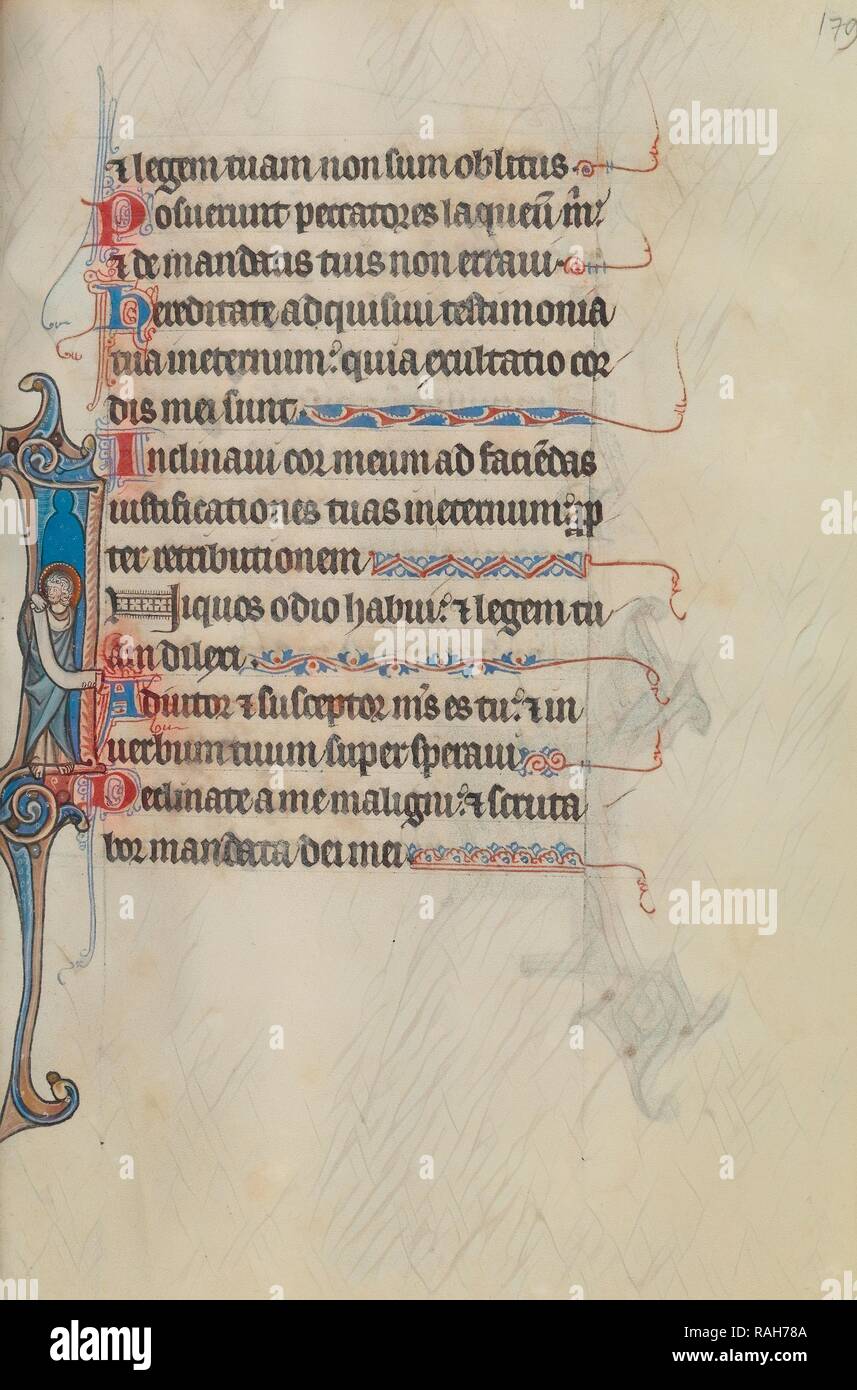 179
⁊ legem tuam non sum oblitus
Posuerunt peccatores laqueū m̄
⁊ de mandatis tuis non erraui
Hereditate adquisiui testimonia
tua ineternum: quia exultatio cor
dis mei sunt
Inclinaui cor meum ad faciēdas
iustificationes tuas ineternum: ꝓp
ter retributionem
Iniquos odio habui: ⁊ legem tu
am dilexi
Adiutor ⁊ susceptor m̄s es tu: ⁊ in
uerbum tuum super speraui
Declinate a me maligni: ⁊ scruta
bor mandata dei mei
alamy
a
alamy
Image ID: RAH78A
www.alamy.com